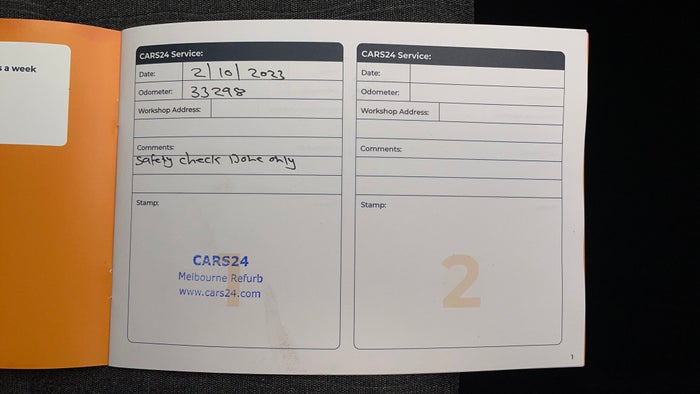 s a week
CARS24 Service:
Date: 2/10/2023
Odometer: 33298
Workshop Address:
Comments:
Safety check Done only
Stamp:
1
CARS24
Melbourne Refurb
www.cars24.com
CARS24 Service:
Date:
Odometer:
Workshop Address:
Comments:
Stamp:
2
1